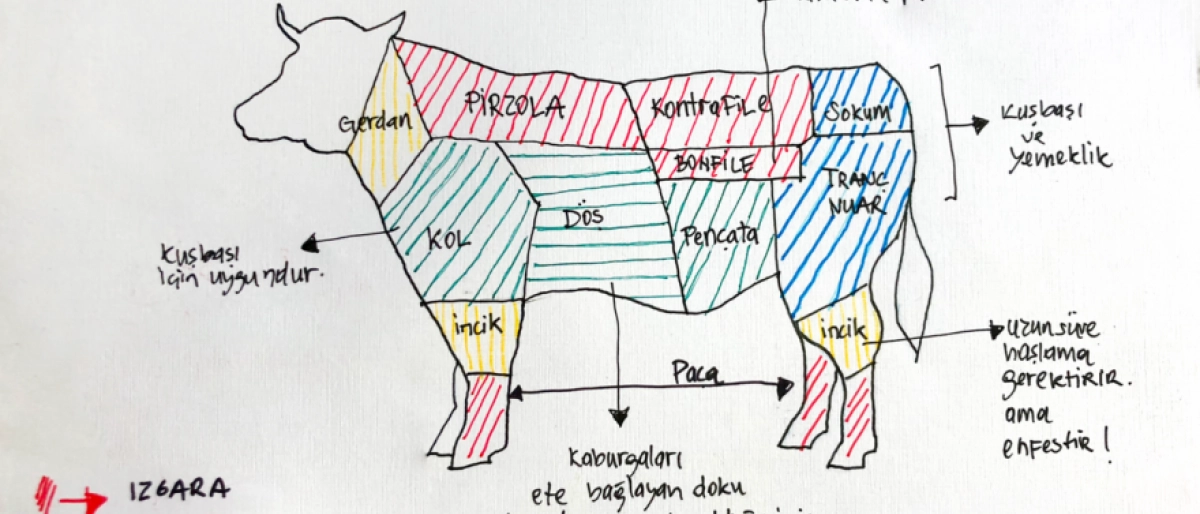 Gerdan
PİRZOLA
KontraFile
Sokum
BONFİLE
TRANÇ
NUAR
KOL
DÖŞ
Pençata
incik
incik
Paça
Kuşbaşı
ve
yemeklik
Kuşbaşı
için uygundur.
uzun süre
haşlama
gerektirir.
ama
enfestir!
Kaburgaları
ete bağlayan doku
IZGARA